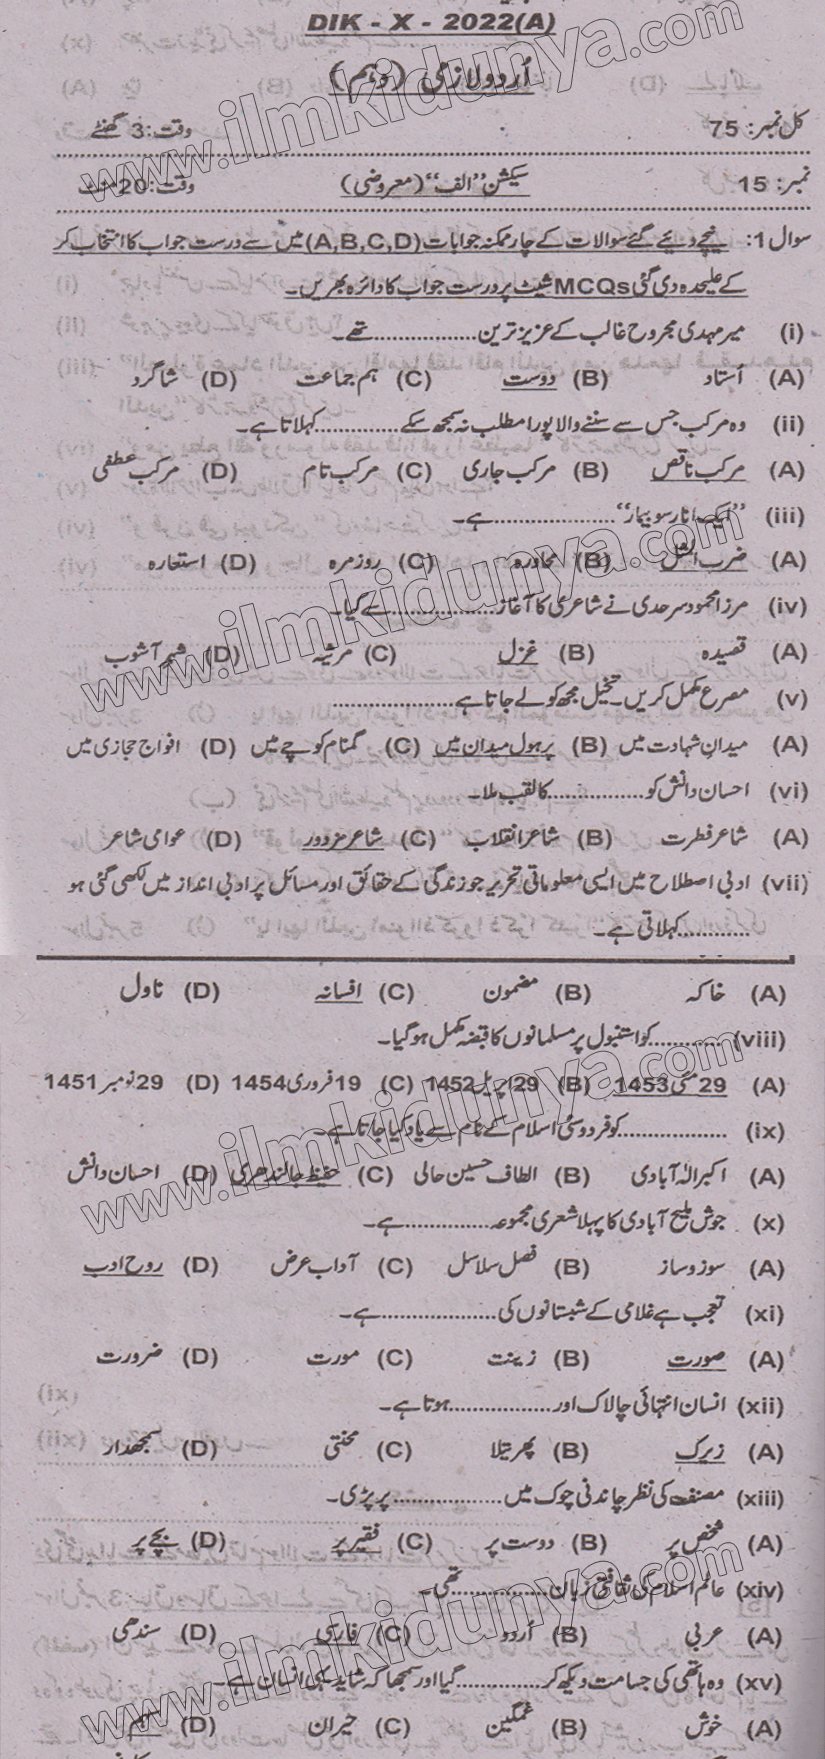 DIK - X - 2022(A)
اُردو لازمی (دہم)
کل نمبر: 75 وقت: 3 گھنٹے
نمبر: 15 سیکشن "الف" (معروضی) وقت: 20 منٹ
سوال 1: نیچے دیئے گئے سوالات کے چار ممکنہ جوابات (A,B,C,D) میں سے درست جواب کا انتخاب کر
کے علیحدہ دی گئی MCQs شیٹ پر درست جواب کا دائرہ بھریں۔
(i) میر مہدی مجروح غالب کے عزیز ترین .................. تھے۔
(A) اُستاد (B) دوست (C) ہم جماعت (D) شاگرد
(ii) وہ مرکب جس سے سننے والا پورا مطلب نہ سمجھ سکے .............. کہلاتا ہے۔
(A) مرکب ناقص (B) مرکب جاری (C) مرکب تام (D) مرکب عطفی
(iii) "ایک انار سو بیمار" .................... ہے۔
(A) ضرب المثل (B) محاورہ (C) روزمرہ (D) استعارہ
(iv) مرزا محمود سرحدی نے شاعری کا آغاز .................. سے کیا۔
(A) قصیدہ (B) غزل (C) مرثیہ (D) شہر آشوب
(v) مصرع مکمل کریں۔ تخیل مجھ کو لے جاتا ہے ....................
(A) میدانِ شہادت میں (B) پرہول میدان میں (C) گمنام کوچے میں (D) افواج حجازی میں
(vi) احسان دانش کو ................ کا لقب ملا۔
(A) شاعر فطرت (B) شاعر انقلاب (C) شاعر مزدور (D) عوامی شاعر
(vii) ادبی اصطلاح میں ایسی معلوماتی تحریر جو زندگی کے حقائق اور مسائل پر ادبی انداز میں لکھی گئی ہو
............ کہلاتی ہے۔
(A) خاکہ (B) مضمون (C) افسانہ (D) ناول
(viii) ............ کو استنبول پر مسلمانوں کا قبضہ مکمل ہو گیا۔
(A) 29 مئی 1453 (B) 29 اپریل 1452 (C) 19 فروری 1454 (D) 29 نومبر 1451
(ix) .................. کو فردوسیٔ اسلام کے نام سے یاد کیا جاتا ہے۔
(A) اکبر الٰہ آبادی (B) الطاف حسین حالی (C) حفیظ جالندھری (D) احسان دانش
(x) جوش ملیح آبادی کا پہلا شعری مجموعہ .............. ہے۔
(A) سوز و ساز (B) فصل سلاسل (C) آداب عرض (D) روح ادب
(xi) تعجب ہے غلامی کے شبستانوں کی .................. ہے۔
(A) صورت (B) زینت (C) مورت (D) ضرورت
(xii) انسان انتہائی چالاک اور .................. ہوتا ہے۔
(A) زیرک (B) پھرتیلا (C) محنتی (D) سمجھدار
(xiii) مصنف کی نظر چاندنی چوک میں .................. پر پڑی۔
(A) شخص پر (B) دوست پر (C) فقیر پر (D) بچے پر
(xiv) عالم اسلام کی ثقافتی زبان ................ تھی۔
(A) عربی (B) اُردو (C) فارسی (D) سندھی
(xv) وہ ہاتھی کی جسامت دیکھ کر .............. گیا اور سمجھا کہ شاید یہی انسان ہے۔
(A) خوش (B) غمگین (C) حیران (D) سہم
www.ilmkidunya.com
www.ilmkidunya.com
www.ilmkidunya.com
www.ilmkidunya.com